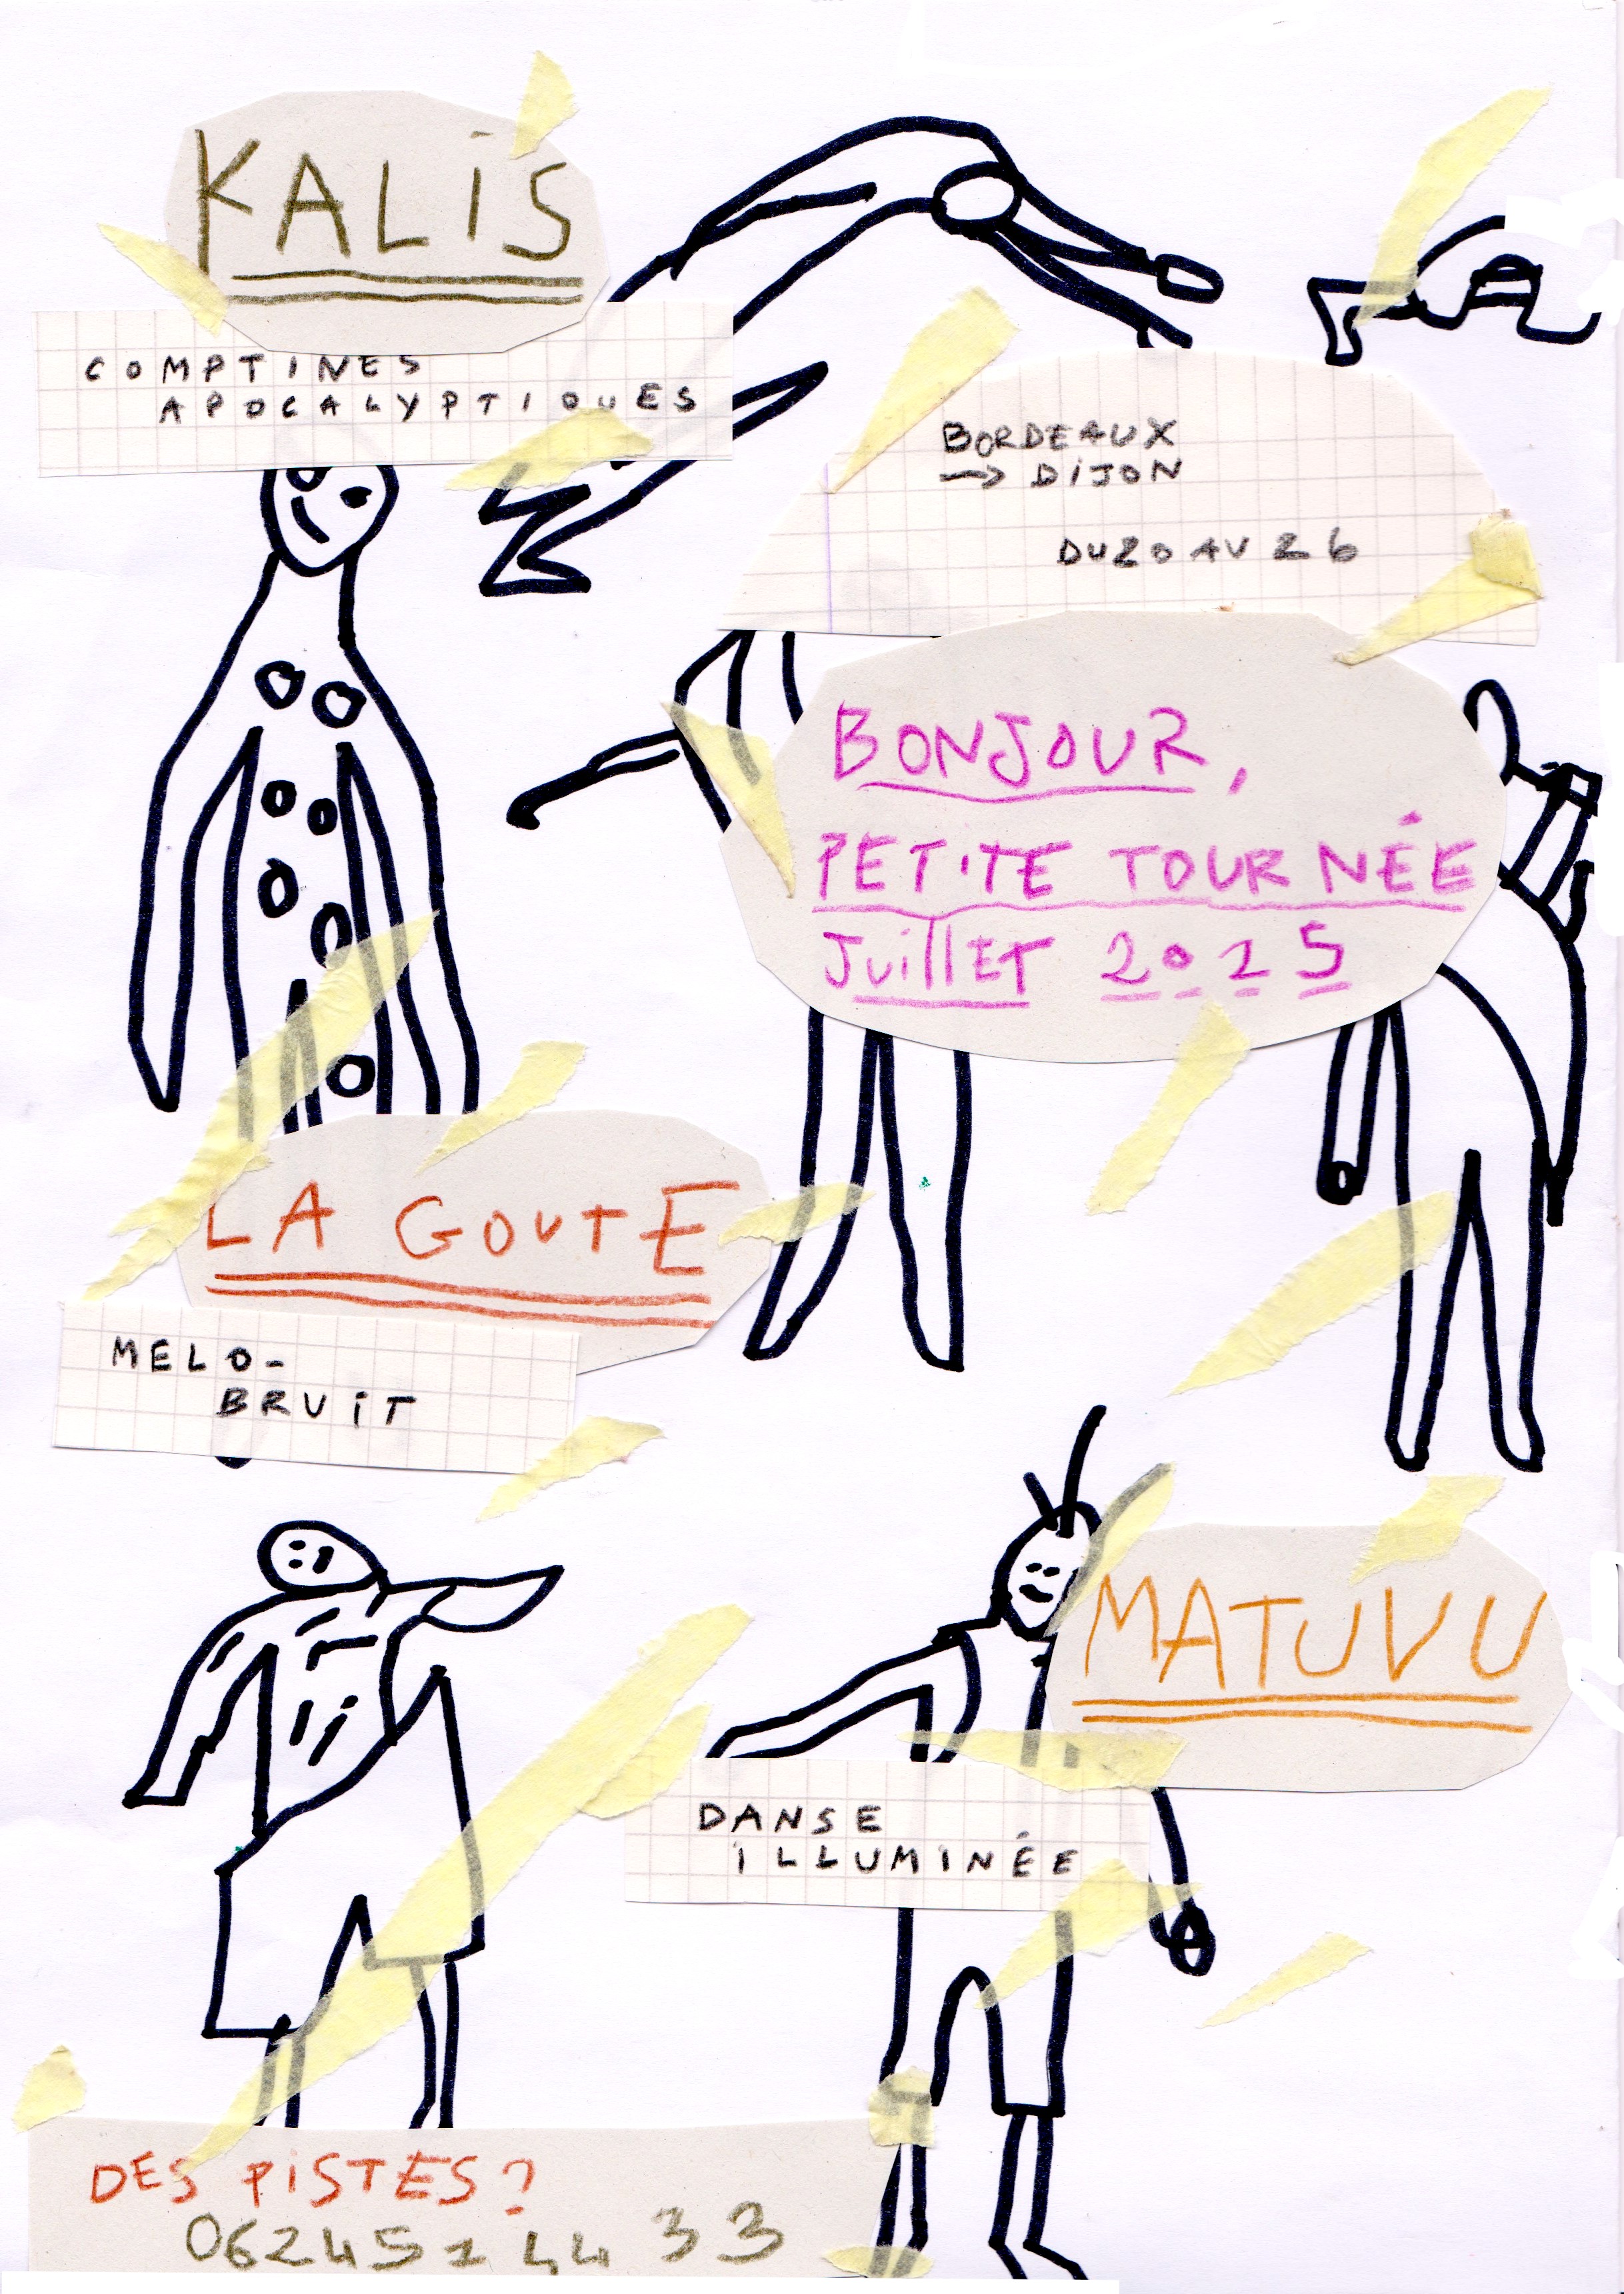 KALiS
COMPTINES
APOCALYPTIQUES
BORDEAUX
→ DiJON
DU 20 AU 26
BONJOUR,
PETITE TOURNÉE
Juillet 2025
LA GOUTE
MELO-
BRUiT
MATUVU
DANSE
iLLUMINÉE
DES PiSTES?
0624514433